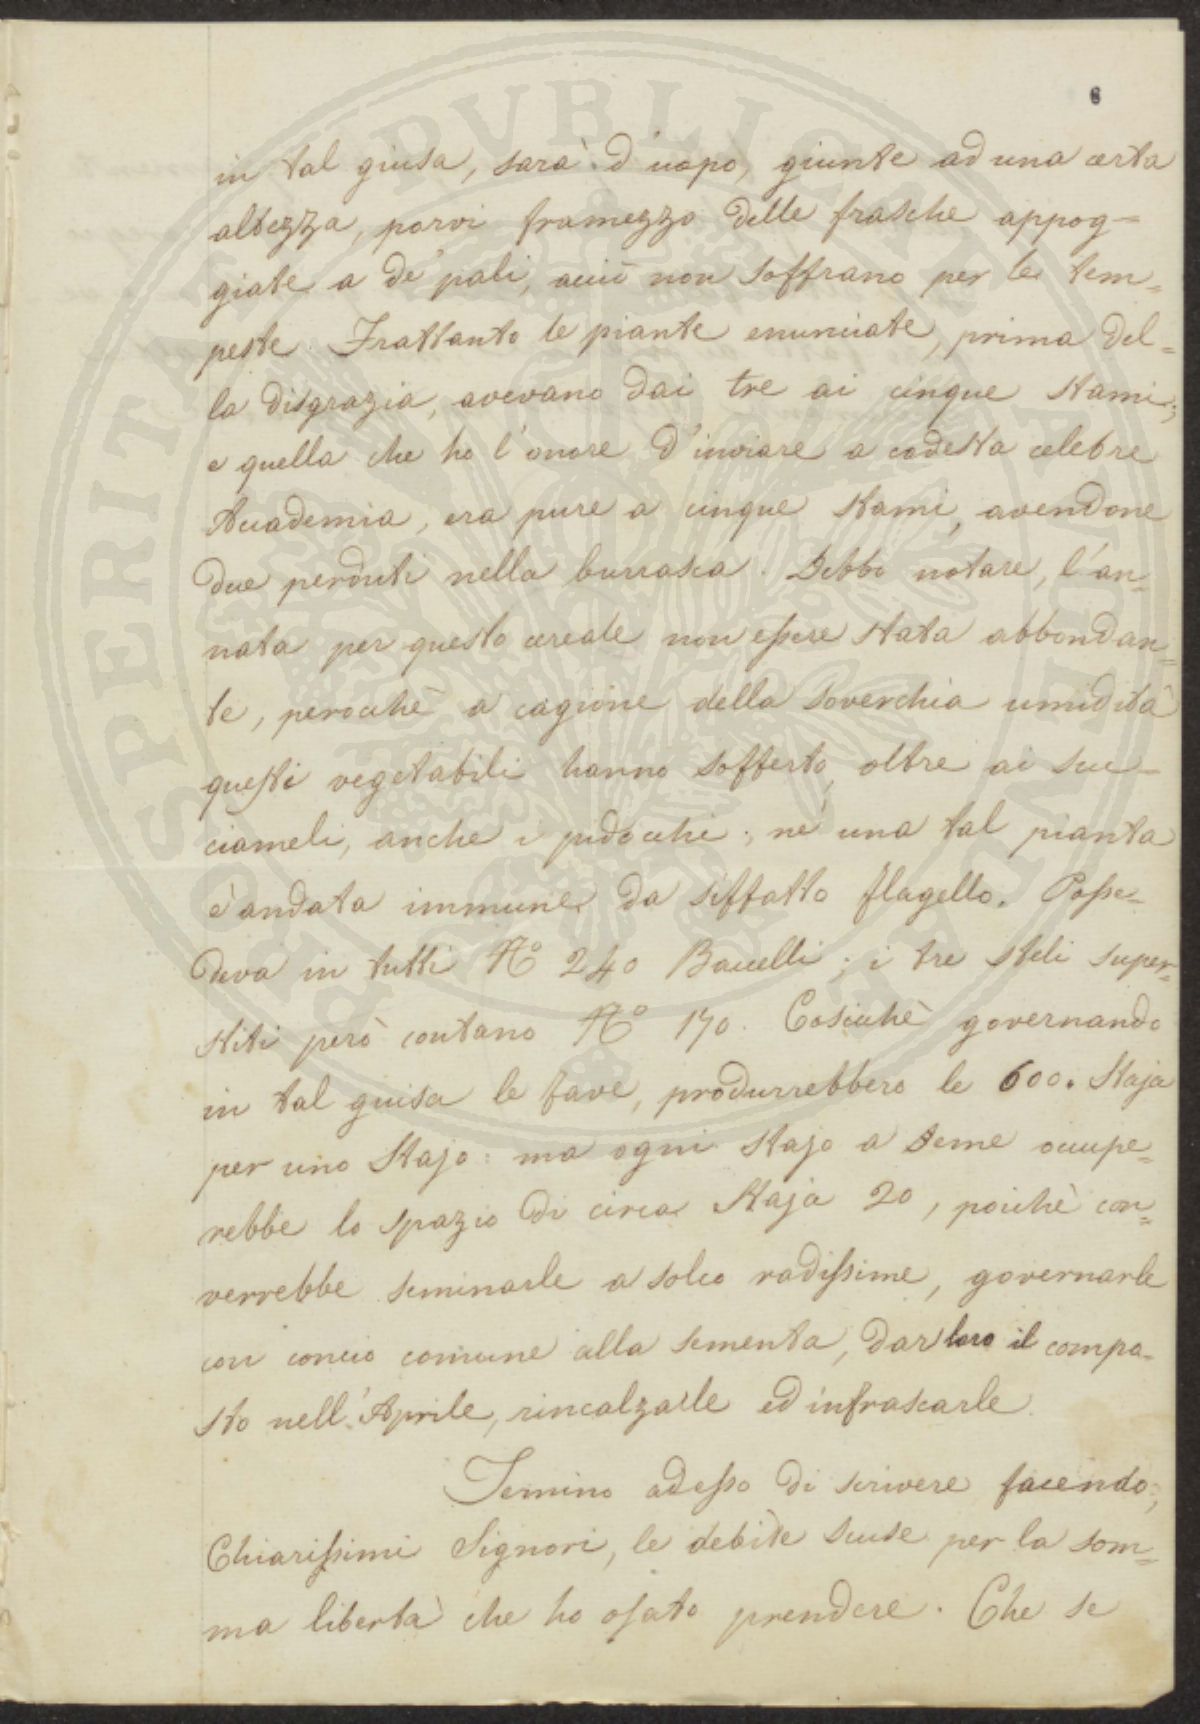 6
in tal giusa, sarà d'uopo, giunte ad una certa
altezza, porvi framezzo delle frasche appog=
giate a de' pali, acciò non soffrano per le tem=
peste. Frattanto le piante enunciate, prima del=
la disgrazia, avevano dai tre ai cinque stami;
e quella che ho l'onore d'inviare a codesta celebre
Accademia, era pure a cinque stami, avendone
due perduti nella burrasca. Debbo notare, l'an=
nata per questo cereale non essere stata abbondan=
te, perocchè a cagione della soverchia umidità
questi vegetabili hanno sofferto, oltre ai suc=
ciameli, anche i pidocchi; nè una tal pianta
è andata immune da siffatto flagello. Posse=
deva in tutti N° 240 Baccelli; i tre steli super=
stiti però contano N° 170. Cosicchè governando
in tal guisa le fave, produrrebbero le 600. Staja
per uno Stajo: ma ogni Stajo a Seme occupe=
rebbe lo spazio di circa Staja 20, poichè con=
verrebbe seminarle a solco radissime, governarle
con concio comune alla sementa, dar loro il compo=
sto nell'Aprile, rincalzalle ed infrascarle.
Termino adesso di scrivere facendo,
Chiarissimi Signori, le debite scuse per la som=
ma libertà che ho osato prendere. Che se
PROSPERITATI PVBLICAE